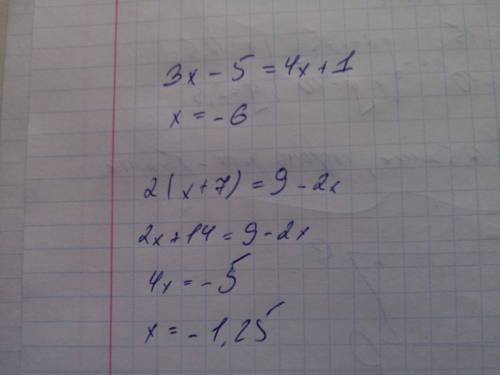 3x - 5 = 4x + 1
x = -6
2(x+7) = 9 - 2x
2x + 14 = 9 - 2x
4x = -5
x = -1,25